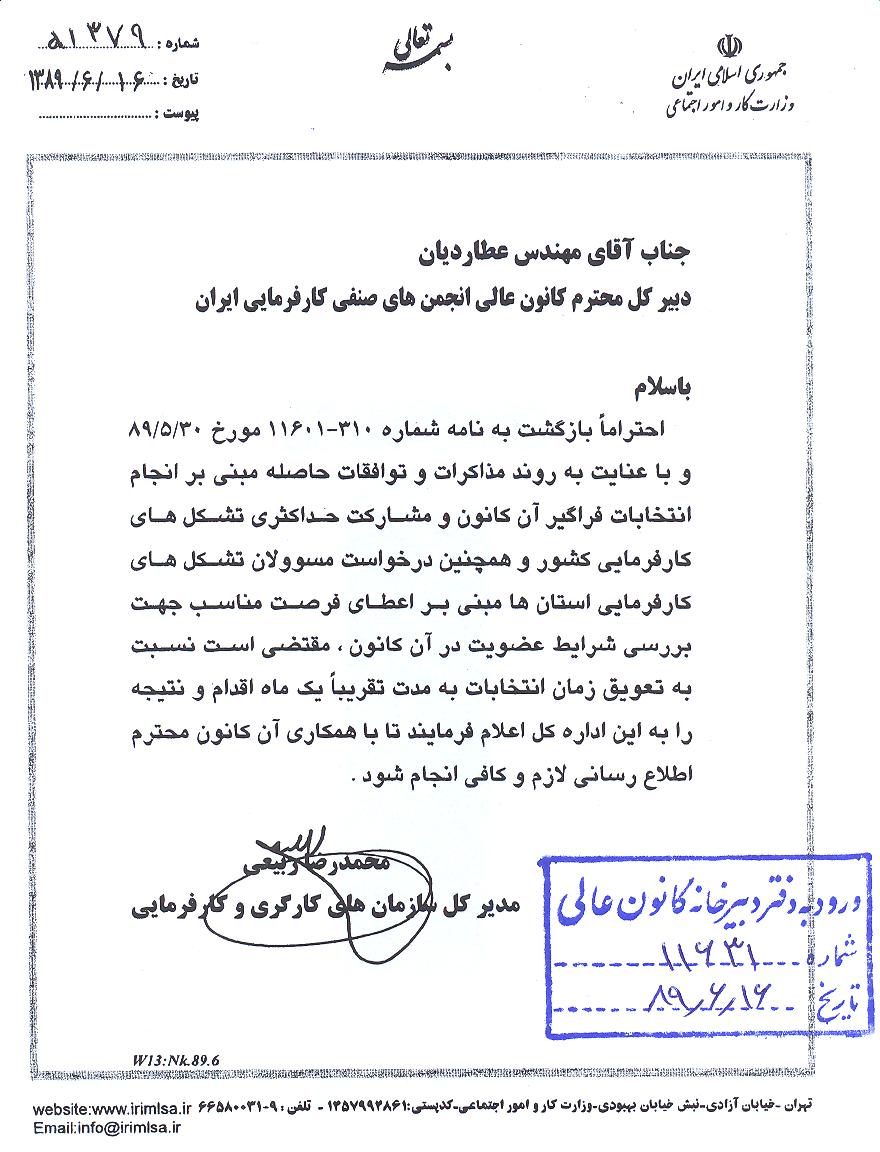 بسمه تعالی
جمهوری اسلامی ایران
وزارت کار و امور اجتماعی
شماره : ۵۱۳۷۹
تاریخ : ۱۳۸۹/۶/۱۶
پیوست :
جناب آقای مهندس عطاردیان
دبیر کل محترم کانون عالی انجمن های صنفی کارفرمایی ایران
باسلام
احتراماً بازگشت به نامه شماره ۳۱۰-۱۱۶۰۱ مورخ ۸۹/۵/۳۰
و با عنایت به روند مذاکرات و توافقات حاصله مبنی بر انجام
انتخابات فراگیر آن کانون و مشارکت حداکثری تشکل های
کارفرمایی کشور و همچنین درخواست مسوولان تشکل های
کارفرمایی استان ها مبنی بر اعطای فرصت مناسب جهت
بررسی شرایط عضویت در آن کانون ، مقتضی است نسبت
به تعویق زمان انتخابات به مدت تقریباً یک ماه اقدام و نتیجه
را به این اداره کل اعلام فرمایند تا با همکاری آن کانون محترم
اطلاع رسانی لازم و کافی انجام شود .
محمدرضا ربیعی
مدیر کل سازمان های کارگری و کارفرمایی
ورود به دفتر دبیرخانه کانون عالی
شماره ۱۱۶۳۱
تاریخ ۸۹/۶/۱۶
W13:Nk.89.6
تهران -خیابان آزادی-نبش خیابان بهبودی-وزارت کار و امور اجتماعی-کدپستی:۱۴۵۷۹۹۴۸۶۱ - تلفن : ۹-۶۶۵۸۰۰۳۱ website:www.irimlsa.ir
Email:info@irimlsa.ir